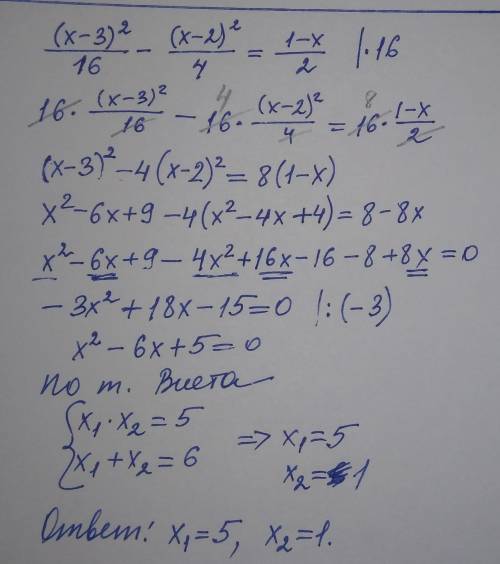 (x-3)²/16 - (x-2)²/4 = 1-x/2 |·16
16· (x-3)²/16 - 16· 4 (x-2)²/4 = 16· 8 1-x/2
(x-3)² - 4(x-2)² = 8(1-x)
x² - 6x + 9 - 4(x² - 4x + 4) = 8 - 8x
x² - 6x + 9 - 4x² + 16x - 16 - 8 + 8x = 0
- 3x² + 18x - 15 = 0 |:(-3)
x² - 6x + 5 = 0
По т. Виета
{ x₁·x₂ = 5
x₁ + x₂ = 6 => x₁ = 5
x₂ = 1
Ответ: x₁ = 5, x₂ = 1.